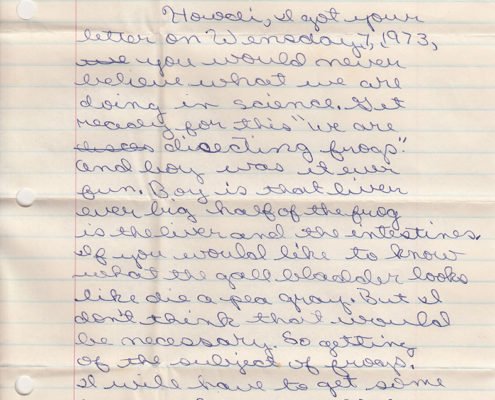 Howdi, I got your
letter on Wensday 7, 1973,
you would never
believe what we are
doing in science. Get
ready for this "we are
disecting frogs".
and boy was it ever
fun. Boy is that liver
ever big half of the frog
is the liver and the intestines.
If you would like to know
what the gall bladder looks
like die a pea gray. But I
don't think that would
be necessary. So getting
of the subject of frogs.
I will have to get some